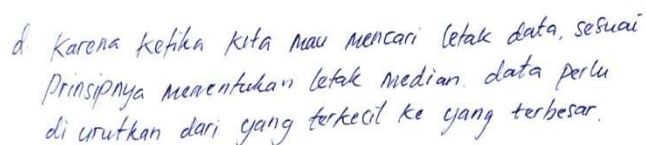 d. Karena ketika kita mau mencari letak data, sesuai
Prinsipnya menentukan letak median. data perlu
di urutkan dari yang terkecil ke yang terbesar.